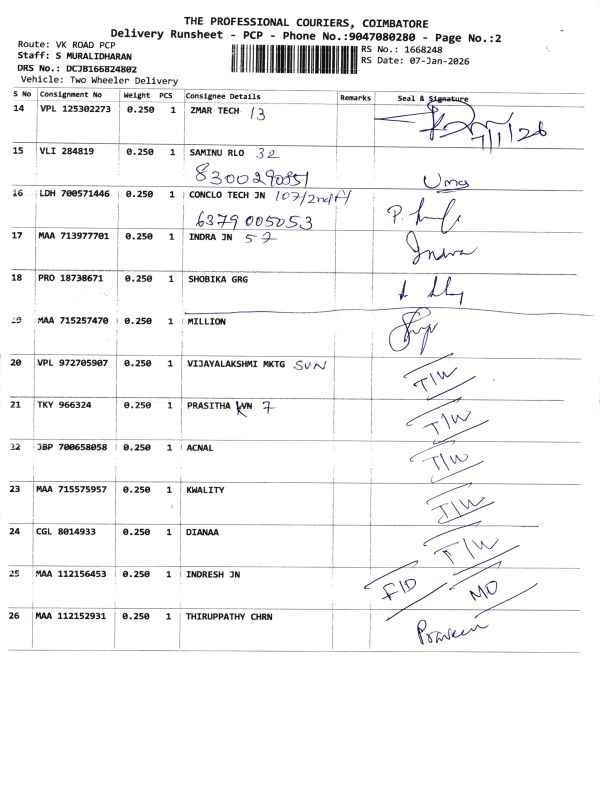 THE PROFESSIONAL COURIERS, COIMBATORE
Delivery Runsheet - PCP - Phone No.:9047080280 - Page No.:2
Route: VK ROAD PCP
Staff: S MURALIDHARAN
DRS No.: DCJB166824802
Vehicle: Two Wheeler Delivery
RS No.: 1668248
RS Date: 07-Jan-2026
S No Consignment No Weight PCS Consignee Details Remarks Seal & Signature
14 VPL 125302273 0.250 1 ZMAR TECH 13 7/1/26
15 VLI 284819 0.250 1 SAMINU RLO 32
8300290951 Uma
16 LDH 700571446 0.250 1 CONCLO TECH JN 107/2nd f/
6379005053
17 MAA 713977701 0.250 1 INDRA JN 57 Indra
18 PRO 18738671 0.250 1 SHOBIKA GRG
19 MAA 715257470 0.250 1 MILLION
20 VPL 972705907 0.250 1 VIJAYALAKSHMI MKTG SVN T/W
21 TKY 966324 0.250 1 PRASITHA KVN 7 T/W
22 JBP 700658058 0.250 1 ACNAL T/W
23 MAA 715575957 0.250 1 KWALITY T/W
24 CGL 8014933 0.250 1 DIANAA T/W
25 MAA 112156453 0.250 1 INDRESH JN F/D MO
26 MAA 112152931 0.250 1 THIRUPPATHY CHRN Praveen